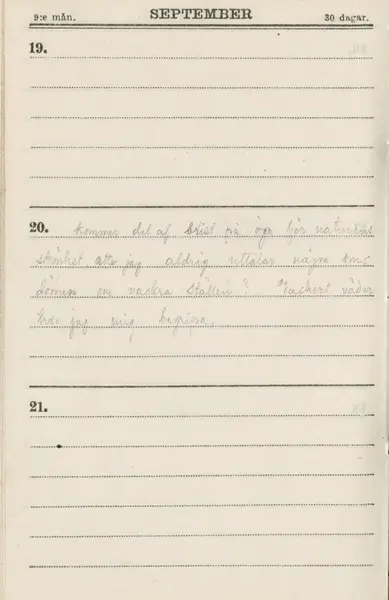 9:e mån. SEPTEMBER 30 dagar.
19.
20. Kommer det af brist på öga för naturens
skönhet, att jag aldrig uttalar några om-
dömen om vackra ställen? Vackert väder
tror jag mig begripa.
21.